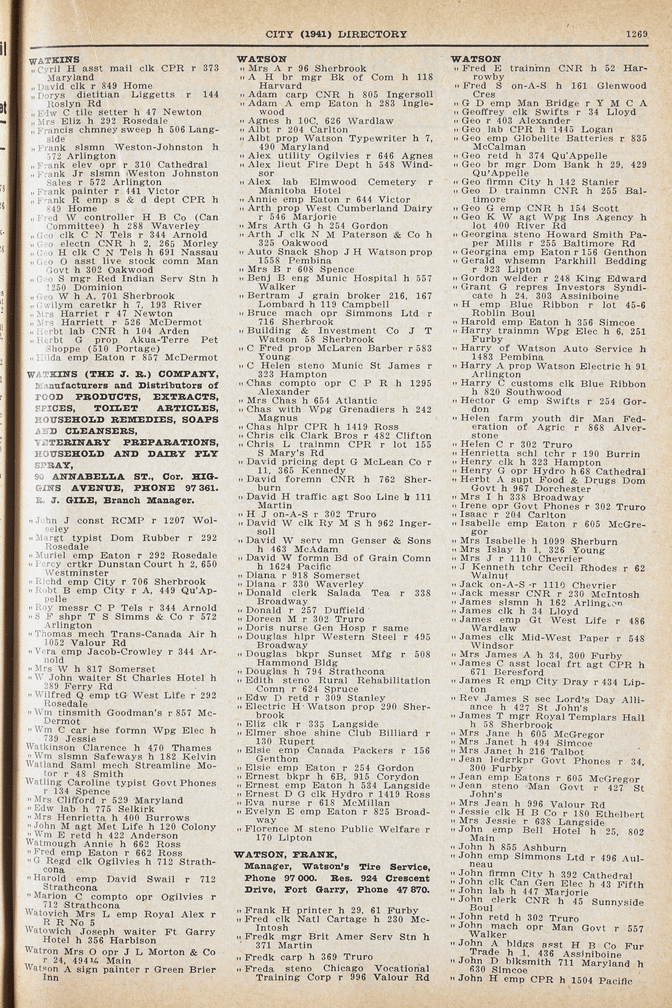 CITY (1941) DIRECTORY
1269
WATKINS
" Cyril H asst mail clk CPR r 373
Maryland
" David clk r 849 Home
" Dorys dietitian Liggetts r 144
Roslyn Rd
" Edw C tile setter h 47 Newton
" Mrs Eliz h 292 Rosedale
" Francis chmney sweep h 506 Lang-
side
" Frank slsmn Weston-Johnston h
572 Arlington
" Frank elev opr r 310 Cathedral
" Frank Jr slsmn Weston Johnston
Sales r 572 Arlington
" Frank painter r 441 Victor
" Frank R emp s & d dept CPR h
849 Home
" Fred W controller H B Co (Can
Committee) h 288 Waverley
" Geo clk C N Tels r 344 Arnold
" Geo electn CNR h 2, 265 Morley
" Geo H clk C N Tels h 691 Nassau
" Geo O asst live stock comn Man
Govt h 302 Oakwood
" Geo S mgr Red Indian Serv Stn h
1250 Dominion
" Geo W h A, 701 Sherbrook
" Gwilym caretkr h 7, 193 River
" Mrs Harriet r 47 Newton
" Mrs Harriett r 526 McDermot
" Herbt lab CNR h 104 Arden
" Herbt G prop Akua-Terre Pet
Shoppe (510 Portage)
" Hilda emp Eaton r 857 McDermot
WATKINS (THE J. R.) COMPANY,
Manufacturers and Distributors of
FOOD PRODUCTS, EXTRACTS,
SPICES, TOILET ARTICLES,
HOUSEHOLD REMEDIES, SOAPS
AND CLEANSERS,
VETERINARY PREPARATIONS,
HOUSEHOLD AND DAIRY FLY
SPRAY,
90 ANNABELLA ST., Cor. HIG-
GINS AVENUE, PHONE 97 361.
R. J. GILE, Branch Manager.
" John J const RCMP r 1207 Wol-
seley
" Margt typist Dom Rubber r 292
Rosedale
" Muriel emp Eaton r 292 Rosedale
" Percy crtkr Dunstan Court h 2, 650
Westminster
" Richd emp City r 706 Sherbrook
" Robt B emp City r A, 449 Qu'Ap-
pelle
" Roy messr C P Tels r 344 Arnold
" S F shpr T S Simms & Co r 572
Arlington
" Thomas mech Trans-Canada Air h
1052 Valour Rd
" Vera emp Jacob-Crowley r 344 Ar-
nold
" Mrs W h 817 Somerset
" W John waiter St Charles Hotel h
289 Ferry Rd
" Wilfred Q emp tG West Life r 292
Rosedale
" Wm tinsmith Goodman's r 857 Mc-
Dermot
" Wm C car hse formn Wpg Elec h
739 Jessie
Watkinson Clarence h 470 Thames
" Wm slsmn Safeways h 182 Kelvin
Watland Saml mech Streamline Mo-
tor r 48 Smith
Watling Caroline typist Govt Phones
r 134 Spence
" Mrs Clifford r 529 Maryland
" Edw lab h 775 Selkirk
" Mrs Henrietta h 400 Burrows
" John M agt Met Life h 120 Colony
" Wm E retd h 422 Anderson
Watmough Annie h 662 Ross
" Fred emp Eaton r 662 Ross
" G Regd clk Ogilvies h 712 Strath-
cona
" Harold emp David Swail r 712
Strathcona
" Marion C compto opr Ogilvies r
712 Strathcona
Watovich Mrs L emp Royal Alex r
R R No 5
Watowich Joseph waiter Ft Garry
Hotel h 356 Harbison
Watron Mrs O opr J L Morton & Co
r 24, 494½ Main
Watson A sign painter r Green Brier
Inn
WATSON
" Mrs A r 96 Sherbrook
" A H br mgr Bk of Com h 118
Harvard
" Adam carp CNR h 805 Ingersoll
" Adam A emp Eaton h 283 Ingle-
wood
" Agnes h 10C, 626 Wardlaw
" Albt r 204 Carlton
" Albt prop Watson Typewriter h 7,
490 Maryland
" Alex utility Ogilvies r 646 Agnes
" Alex lieut Fire Dept h 548 Wind-
sor
" Alex lab Elmwood Cemetery r
Manitoba Hotel
" Annie emp Eaton r 644 Victor
" Arth prop West Cumberland Dairy
r 546 Marjorie
" Mrs Arth G h 254 Gordon
" Arth J clk N M Paterson & Co h
325 Oakwood
" Auto Snack Shop J H Watson prop
1558 Pembina
" Mrs B r 608 Spence
" Benj B eng Munic Hospital h 557
Walker
" Bertram J grain broker 216, 167
Lombard h 119 Campbell
" Bruce mach opr Simmons Ltd r
716 Sherbrook
" Building & Investment Co J T
Watson 58 Sherbrook
" C Fred prop McLaren Barber r 583
Young
" C Helen steno Munic St James r
323 Hampton
" Chas compto opr C P R h 1295
Alexander
" Mrs Chas h 654 Atlantic
" Chas with Wpg Grenadiers h 242
Magnus
" Chas hlpr CPR h 1419 Ross
" Chris clk Clark Bros r 482 Clifton
" Chris L trainmn CPR r lot 155
S Mary's Rd
" David pricing dept G McLean Co r
11, 365 Kennedy
" David foremn CNR h 762 Sher-
burn
" David H traffic agt Soo Line h 111
Martin
" H J on-A-S r 302 Truro
" David W clk Ry M S h 962 Inger-
soll
" David W serv mn Genser & Sons
h 463 McAdam
" David W formn Bd of Grain Comn
h 1624 Pacific
" Diana r 918 Somerset
" Diana r 330 Waverley
" Donald clerk Salada Tea r 338
Broadway
" Donald r 257 Duffield
" Doreen M r 302 Truro
" Doris nurse Gen Hosp r same
" Douglas hlpr Western Steel r 495
Broadway
" Douglas bkpr Sunset Mfg r 508
Hammond Bldg
" Douglas h 794 Strathcona
" Edith steno Rural Rehabilitation
Comn r 624 Spruce
" Edw D retd r 309 Stanley
" Electric H Watson prop 290 Sher-
brook
" Eliz clk r 335 Langside
" Elmer shoe shine Club Billiard r
130 Rupert
" Elsie emp Canada Packers r 156
Genthon
" Elsie emp Eaton r 254 Gordon
" Ernest bkpr h 6B, 915 Corydon
" Ernest emp Eaton h 534 Langside
" Ernest D G clk Hydro r 1419 Ross
" Eva nurse r 618 McMillan
" Evelyn E emp Eaton r 825 Broad-
way
" Florence M steno Public Welfare r
170 Lipton
WATSON, FRANK,
Manager, Watson's Tire Service,
Phone 97 000. Res. 924 Crescent
Drive, Fort Garry, Phone 47 870.
" Frank H printer h 29, 61 Furby
" Fred clk Natl Cartage h 230 Mc-
Intosh
" Fredk mgr Brit Amer Serv Stn h
371 Martin
" Fredk carp h 369 Truro
" Freda steno Chicago Vocational
Training Corp r 996 Valour Rd
WATSON
" Fred E trainmn CNR h 52 Har-
rowby
" Fred S on-A-S h 161 Glenwood
Cres
" G D emp Man Bridge r Y M C A
" Geoffrey clk Swifts r 34 Lloyd
" Geo r 403 Alexander
" Geo lab CPR h 1445 Logan
" Geo emp Globelite Batteries r 835
McCalman
" Geo retd h 374 Qu'Appelle
" Geo br mgr Dom Bank h 29, 429
Qu'Appelle
" Geo firmn City h 142 Stanier
" Geo D trainmn CNR h 255 Bal-
timore
" Geo G emp CNR h 154 Scott
" Geo K W agt Wpg Ins Agency h
lot 400 River Rd
" Georgina steno Howard Smith Pa-
per Mills r 255 Baltimore Rd
" Georgina emp Eaton r 156 Genthon
" Gerald whsemn Parkhill Bedding
r 923 Lipton
" Gordon welder r 248 King Edward
" Grant G repres Investors Syndi-
cate h 24, 303 Assiniboine
" H emp Blue Ribbon r lot 45-6
Roblin Boul
" Harold emp Eaton h 356 Simcoe
" Harry trainmn Wpg Elec h 6, 251
Furby
" Harry of Watson Auto Service h
1483 Pembina
" Harry A prop Watson Electric h 91
Arlington
" Harry C customs clk Blue Ribbon
h 820 Southwood
" Hector G emp Swifts r 254 Gor-
don
" Helen farm youth dir Man Fed-
eration of Agric r 868 Alver-
stone
" Helen C r 302 Truro
" Henrietta schl tchr r 190 Burrin
" Henry clk h 323 Hampton
" Henry G opr Hydro h 68 Cathedral
" Herbt A supt Food & Drugs Dom
Govt h 967 Dorchester
" Mrs I h 338 Broadway
" Irene opr Govt Phones r 302 Truro
" Isaac r 204 Carlton
" Isabelle emp Eaton r 605 McGre-
gor
" Mrs Isabella h 1099 Sherburn
" Mrs Islay h 1, 326 Young
" Mrs J r 1110 Chevrier
" J Kenneth tchr Cecil Rhodes r 62
Walnut
" Jack on-A-S r 1110 Chevrier
" Jack messr CNR r 230 McIntosh
" James slsmn h 162 Arlington
" James clk h 34 Lloyd
" James emp Gt West Life r 486
Wardlaw
" James clk Mid-West Paper r 548
Windsor
" Mrs James A h 34, 300 Furby
" James C asst local frt agt CPR h
671 Beresford
" James R emp City Dray r 434 Lip-
ton
" Rev James S sec Lord's Day Alli-
ance h 427 St John's
" James T mgr Royal Templars Hall
h 58 Sherbrook
" Mrs Jane h 605 McGregor
" Mrs Janet h 494 Simcoe
" Mrs Janet h 216 Talbot
" Jean ledgrkpr Govt Phones r 34,
300 Furby
" Jean emp Eatons r 605 McGregor
" Jean steno Man Govt r 427 St
John's
" Mrs Jean h 996 Valour Rd
" Jessie clk H B Co r 180 Ethelbert
" Mrs Jessie r 638 Langside
" John emp Bell Hotel h 25, 802
Main
" John h 855 Ashburn
" John emp Simmons Ltd r 496 Aul-
neau
" John firmn City h 392 Cathedral
" John clk Can Gen Elec h 43 Fifth
" John lab h 447 Marjorie
" John clerk CNR h 45 Sunnyside
Boul
" John retd h 302 Truro
" John mach opr Man Govt r 557
Walker
" John A bldgs asst H B Co Fur
Trade h 1, 436 Assiniboine
" John D blksmith 711 Maryland h
630 Simcoe
" John H emp CPR h 1504 Pacific